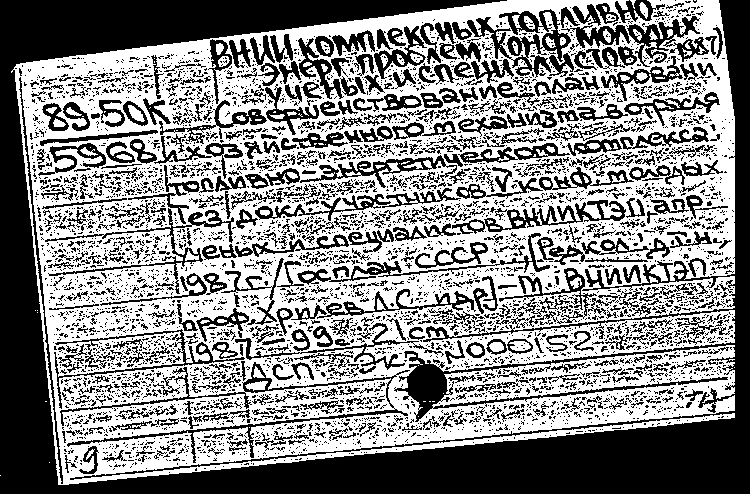 ВНИИ КОМПЛЕКСНЫХ ТОПЛИВНО
ЭНЕРГ ПРОБЛЕМ. КОНФ МОЛОДЫХ
УЧЕНЫХ И СПЕЦИАЛИСТОВ (5; 1987)
89-50К
5968
Совершенствование планировани
и хозяйственного механизма в отрасля
топливно-энергетического комплекса:
Тез. докл. участников V конф. молодых
ученых и специалистов ВНИИКТЭП, апр.
1987г. / Госплан СССР..., [Редкол.: д.т.н.,
проф. Хрилев Л.С. и др] - М.: ВНИИКТЭП,
1987. - 99. 21см.
ДСП. Экз. N000152
9